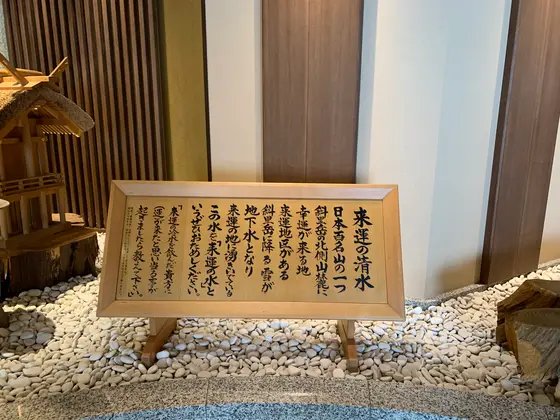 来運の清水
日本百名山の一つ
斜里岳の北側山麓に
幸運が来る地
来運地区がある
斜里岳に降る雪が
地下水となり
来運の地に湧きいでいる
この水を「来運の水」と
いう どうぞおためしください。
「来運の水を飲んだ貴方に
（運）が来たと思い当る事が
起きましたら教えて下さい。